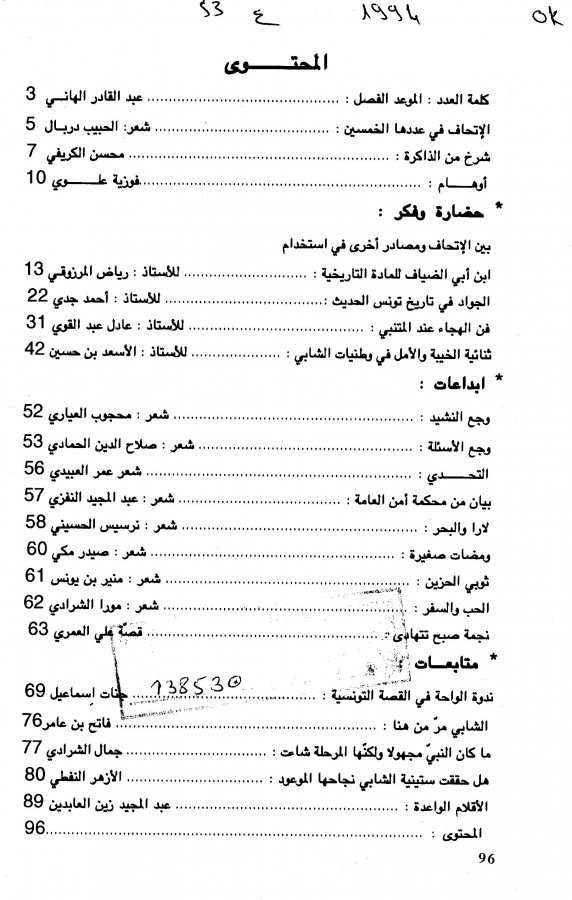 53 ع 1994 OK
المحتــــوى
كلمة العدد : الموعد الفصل : ........................................ عبد القادر الهاني 3
الإتحاف في عددها الخمسين : ........................... شعر: الحبيب دربال 5
شرخ من الذاكرة : ................................................ محسن الكريفي 7
أوهـــام : .......................................................فوزية علـــوي 10
* حضارة وفكر :
بين الإتحاف ومصادر أخرى في استخدام
ابن أبي الضياف للمادة التاريخية : .............. للأستاذ : رياض المرزوقي 13
الجواد في تاريخ تونس الحديث :..................... للأستاذ : أحمد جدي 22
فن الهجاء عند المتنبي : .......................... للأستاذ : عادل عبد القوي 31
ثنائية الخيبة والأمل في وطنيات الشابي : .......... للأستاذ : الأسعد بن حسين 42
* ابداعات :
وجع النشيد : ........................................ شعر : محجوب العياري 52
وجع الأسئلة : .................................. شعر : صلاح الدين الحمادي 53
التحــــدي : ............................................ شعر عمر العبيدي 56
بيان من محكمة أمن العامة : ........................ شعر : عبد المجيد النفزي 57
لارا والبحر : ....................................... شعر : نرسيس الحسيني 58
ومضات صغيرة : ........................................ شعر : صيدر مكي 60
ثوبي الحزين : ........................................ شعر : منير بن يونس 61
الحب والسفر : ........................................ شعر : مورا الشرادي 62
نجمة صبح تتهادى : ........................................ قصّة علي العمري 63
* متابعات :
ندوة الواحة في القصة التونسية : ........................ جنات إسماعيل 69
138530
الشابي مرّ من هنا : ........................................ فاتح بن عامر 76
ما كان النبيّ مجهولا ولكنّها المرحلة شاءت : .................... جمال الشرادي 77
هل حققت ستينية الشابي نجاحها الموعود : .................... الأزهر النفطي 80
الأقلام الواعدة : ........................................ عبد المجيد زين العابدين 89
المحتوى : ............................................................96
96